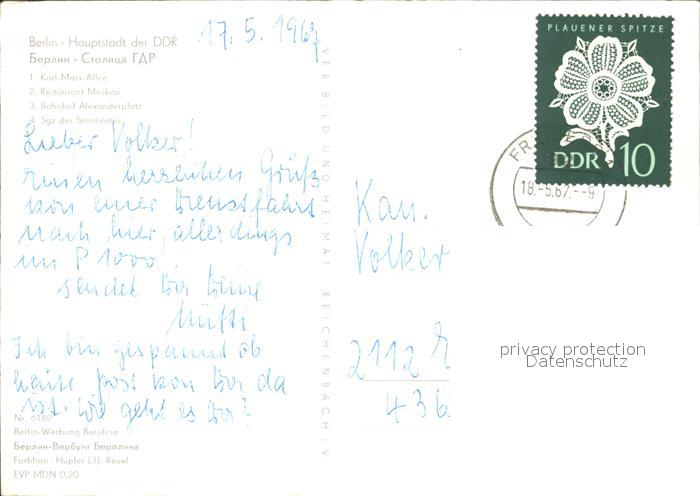 Berlin - Hauptstadt der DDR
Берлин - Столица ГДР
1. Karl-Marx-Allee
2. Restaurant Moskau
3. Bahnhof Alexanderplatz
4. Sitz des Staatsrates
17. 5. 1967
Lieber Volker!
einen herzlichen Gruß
von einer Dienstfahrt
nach hier, allerdings
im P 1000,
sendet Dir Deine
Mutti
Ich bin gespannt ob
heute Post von Dir da
ist. Wie geht es Dir?
Nr. 6189
Berlin-Werbung Berolina
Берлин-Вербунг Беролина
Farbfoto: Hupfer (3), Reuel
EVP MDN 0,20
VEB BILD UND HEIMAT REICHENBACH i. V.
PLAUENER SPITZE
DDR 10
18.-5.67.--9
Kan.
Volker
2112
436
privacy protection
Datenschutz